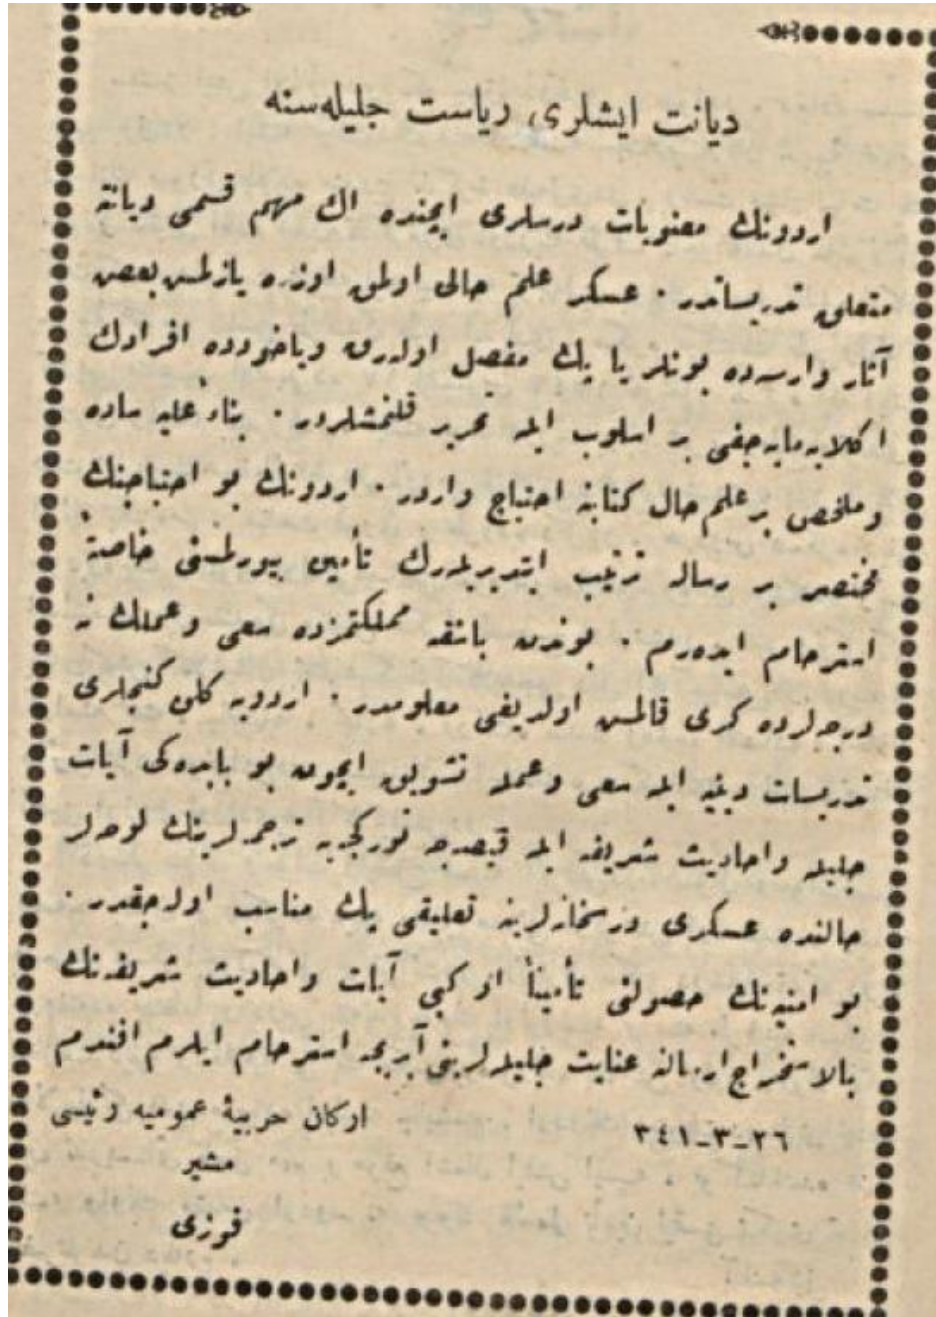 ديانت ايشلرى، رياست جليله‌سنه
اردونك معنويات درسلرى ايچنده اك مهم قسمى ديانته
متعلق تدريساتدر . عسكر علم حالى اولمق اوزره يازلمش بعض
آثار وارسه‌ده بونلر يا پك مفصل اوله‌رق وياخودده افرادك
اكلايه‌مايه‌جغى بر اسلوب ايله تحرير قلنمشلردر . بناءً عليه ساده
وملخص بر علم حال كتابنه احتياج واردر . اردونك بو احتياجنك
مختصر بر رساله ترتيب ايتديريله‌رك تأمين بيورلمسنى خاصةً
استرحام ايده‌رم . بوندن باشقه مملكتمزده سعى وعملك نه
درجه‌لرده كرى قالمش اولديغى معلومدر . اردويه كلن كنجلرى
تدريسات دينيه ايله سعى وعمله تشويق ايچون بو بابده‌كى آيات
جليله واحاديث شريفه ايله قيصه‌جه توركجه‌يه ترجمه‌لرينك لوحه‌لر
حالنده عسكرى درسخانه‌لرينه تعليقى پك مناسب اوله‌جقدر .
بو امنيه‌نك حصولنى تأميناً او كبى آيات واحاديث شريفه‌نك
بالاستخراج ارساله عنايت جليله‌لرينى آيريجه استرحام ايلرم افندم
٢٦-٣-٣٤١
اركان حربيۀ عموميه رئيسى
مشير
فوزى